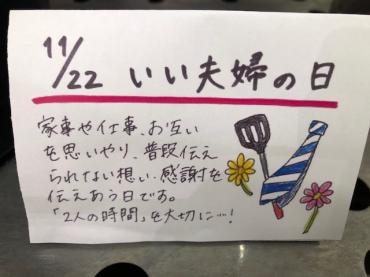 11/22 いい夫婦の日
家事や仕事、お互い
を思いやり、普段伝え
られない想い、感謝を
伝えあう日です。
「2人の時間」を大切に…!